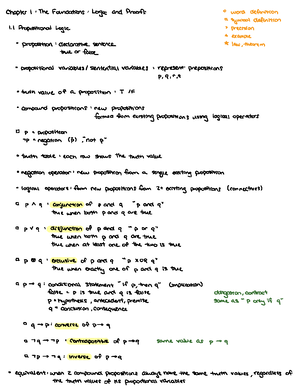 Chapter 1 - The Foundations: Logic and Proofs
word definition
symbol definition
1.1 Propositional Logic
proposition: declarative sentence
true or false
propositional variables / sentential variables: represent propositions
p, q, r, s
truth value of a proposition: T / F
compound propositions: new propositions
formed from existing propositions using logical operators
p = proposition
¬p = negation (p̄), "not p"
truth table: each row shows the truth value
negation operator: new proposition from a single existing proposition
logical operators: form new propositions from 2+ existing propositions (connectives)
p ∧ q: conjunction of p and q "p and q"
true when both p and q are true
p ∨ q: disjunction of p and q "p or q"
true when both p and q are true
true when at least one of the two is true
p ⊕ q: exclusive of p and q "p XOR q"
true when exactly one of p and q is true
p → q: conditional statement "if p, then q" (implication)
false = p is true and q is false
same as "p only if q"
p = hypothesis, antecedent, premise
q = conclusion, consequence
q → p: converse of p → q
¬q → ¬p: contrapositive of p → q same value as p → q
¬p → ¬q: inverse of p → q
equivalent: when 2 compound propositions always have the same truth values, regardless of
the truth values of its propositional variables